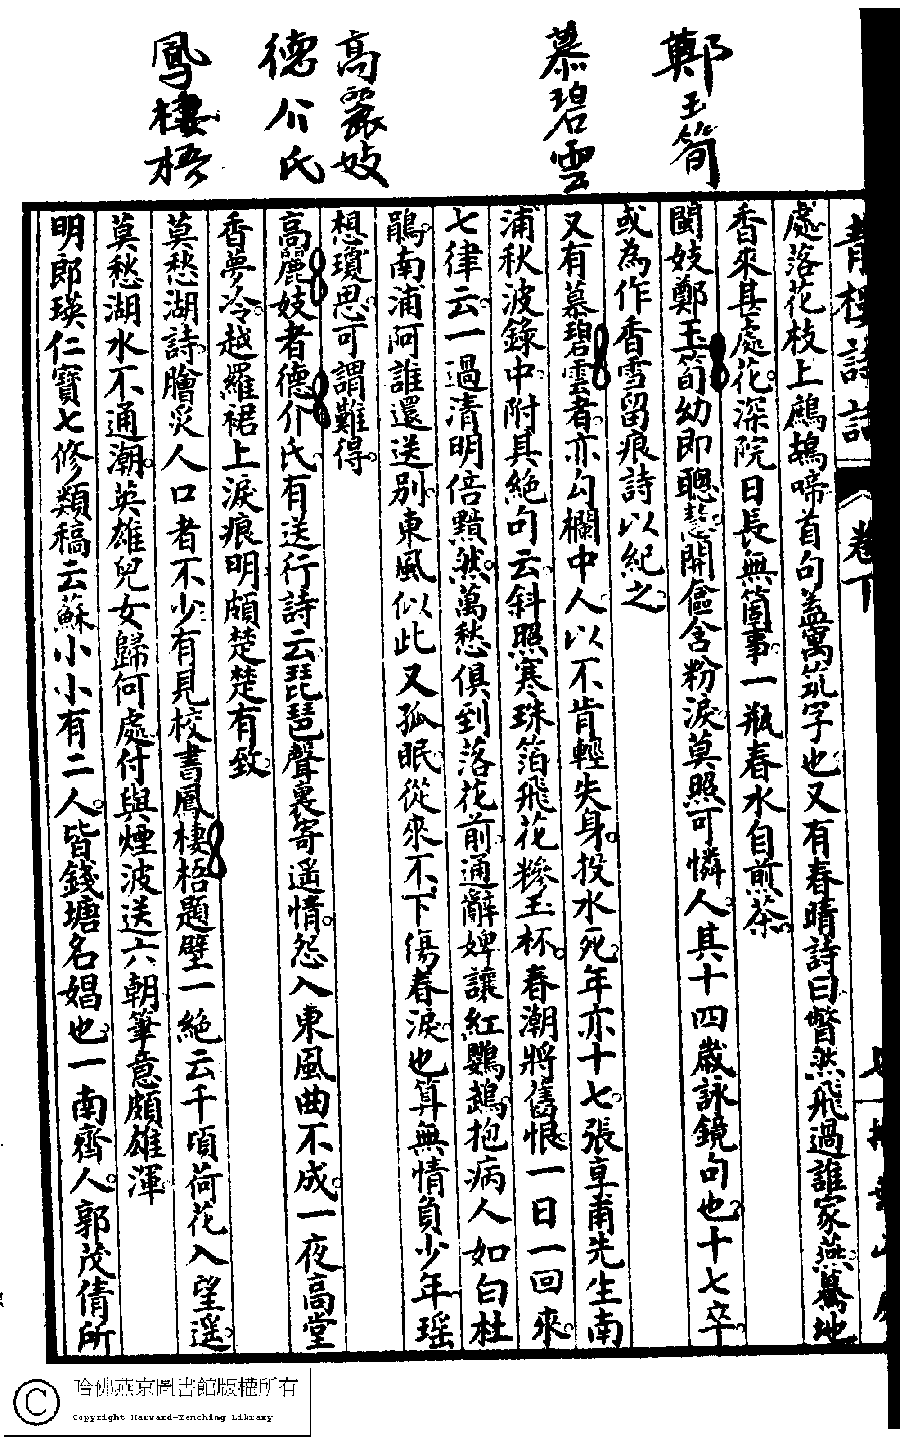 鄭玉筍
慕碧雲
高麗妓
德介氏
鳳棲梧
青樓詩話 卷下
處落花枝上鷓鴣啼首句蓋寓筑字也又有春晴詩曰瞥然飛過誰家燕驀地
香來甚處花深院日長無箇事一瓶春水自煎茶
閩妓鄭玉筍幼即聰慧開奩含粉淚莫照可憐人其十四歲詠鏡句也十七卒
或為作香雪留痕詩以紀之
又有慕碧雲者亦勾欄中人以不肯輕失身投水死年亦十七張卓甫先生南
浦秋波錄中附其絕句云斜照寒珠箔飛花糝玉杯春潮將舊恨一日一回來
七律云一過清明倍黯然萬愁俱到落花前通辭婢讓紅鸚鵡抱病人如白杜
鵑南浦阿誰還送別東風似此又孤眠從來不下傷春淚也算無情負少年瑶
想瓊思可謂難得
高麗妓者德介氏有送行詩云琵琶聲裏寄遥情怨入東風曲不成一夜高堂
香夢冷越羅裙上淚痕明頗楚楚有致
莫愁湖詩膾炙人口者不少有見校書鳳棲梧題壁一絕云千頃荷花入望遥
莫愁湖水不通潮英雄兒女歸何處付與煙波送六朝筆意頗雄渾
明郎瑛仁寶七修類稿云蘇小小有二人皆錢塘名娼也一南齊人郭茂倩所
哈佛燕京圖書館版權所有
Copyright Harvard-Yenching Library